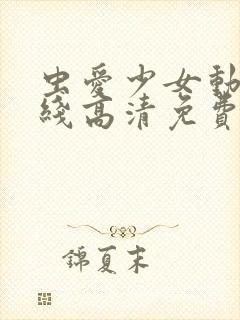 虫愛少女動
綫高清免費
錦夏末